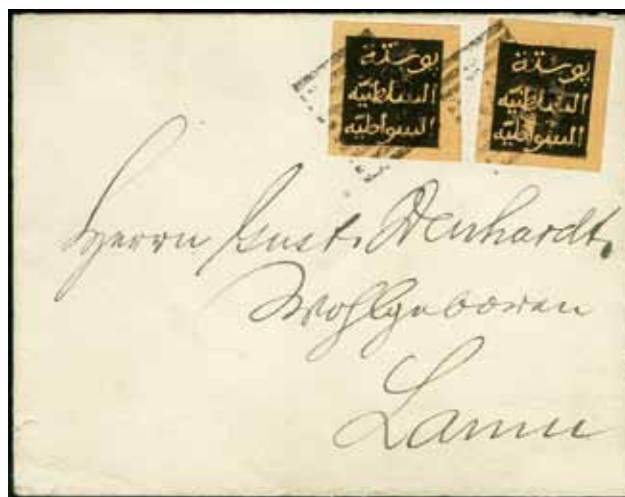 بوستة
السلطنيه
السواطيه
بوستة
السلطنيه
السواطيه
Herrn Gust. Denhardt,
Wohlgeboren
Lamu